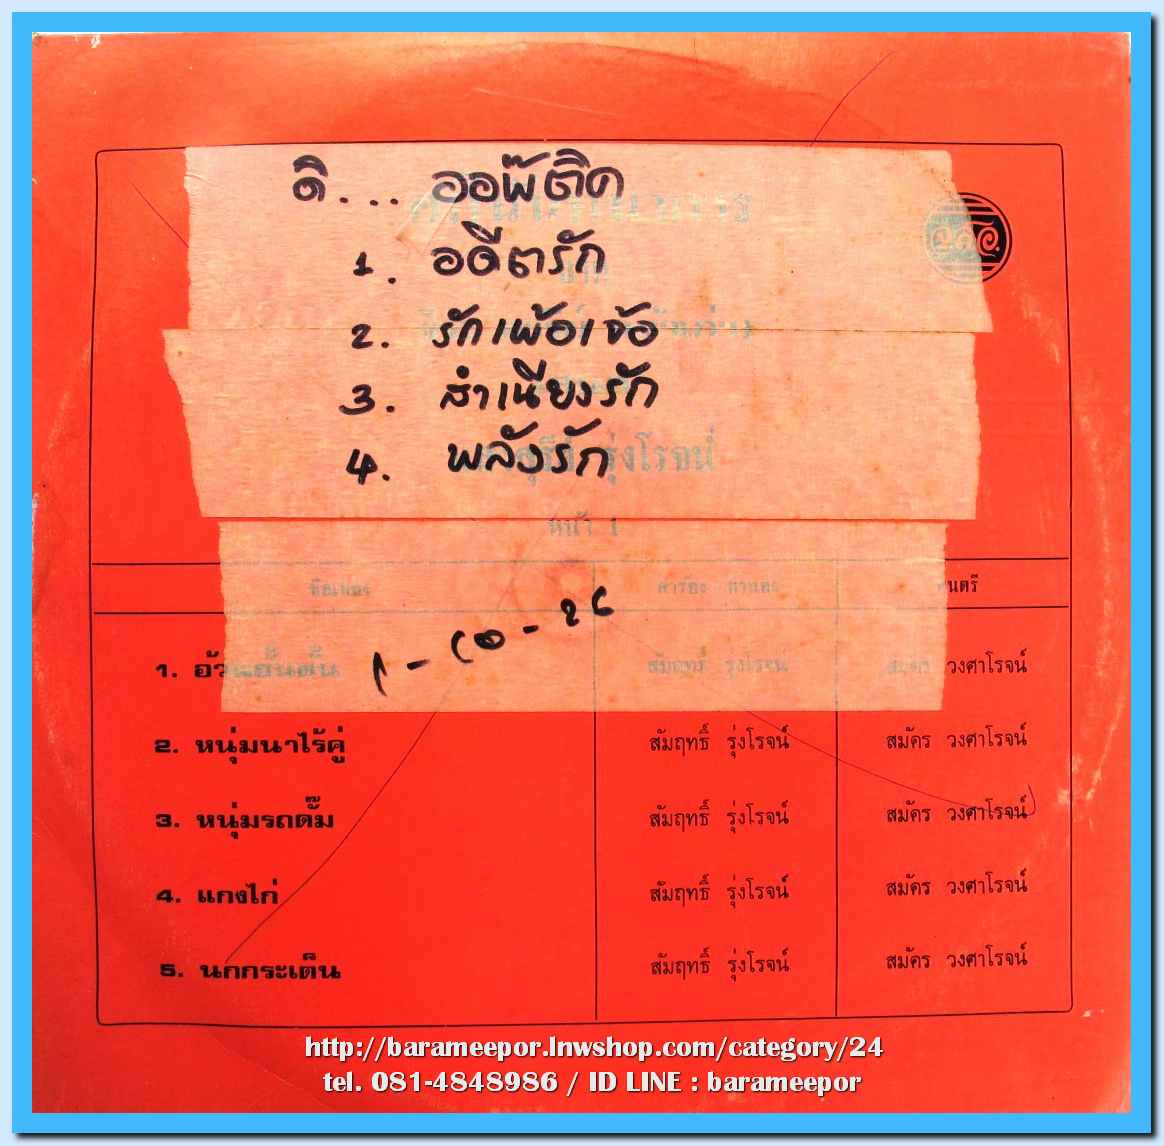 ดิ... ออพ๊ติค
1. อดีตรัก
2. รักเพ้อเจ้อ
3. สำเนียงรัก
4. พลังรัก
รุ่งโรจน์
หน้า 1
ชื่อเพลง คำร้อง ทำนอง ดนตรี
1. สัมฤทธิ์ รุ่งโรจน์ สมัคร วงศาโรจน์
2. หนุ่มนาไร้คู่ สัมฤทธิ์ รุ่งโรจน์ สมัคร วงศาโรจน์
3. หนุ่มรถดั๊ม สัมฤทธิ์ รุ่งโรจน์ สมัคร วงศาโรจน์
4. แกงไก่ สัมฤทธิ์ รุ่งโรจน์ สมัคร วงศาโรจน์
5. นกกระเต็น สัมฤทธิ์ รุ่งโรจน์ สมัคร วงศาโรจน์
http://barameepor.lnwshop.com/category/24
tel. 081-4848986 / ID LINE : barameepor